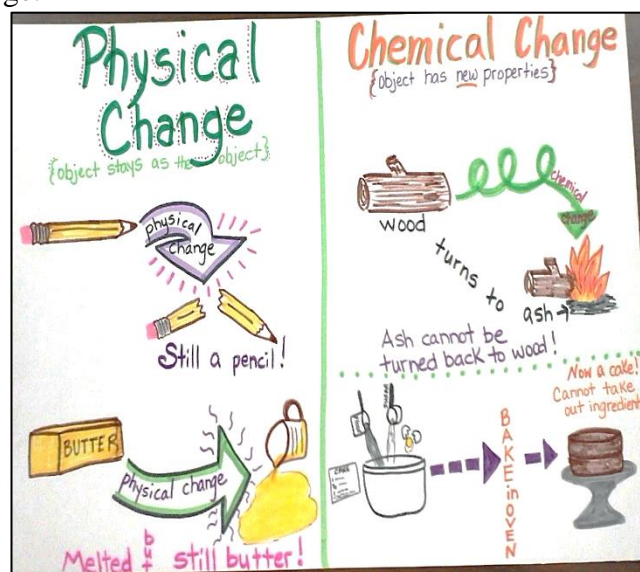 Physical
Change
{object stays as the object}
physical
change
Still a pencil!
BUTTER
physical change
Melted but still butter!
Chemical Change
{Object has new properties}
wood
chemical
change
turns to
ash→
Ash cannot be
turned back to wood!
Now a cake!
Cannot take
out ingredient
BAKE in OVEN